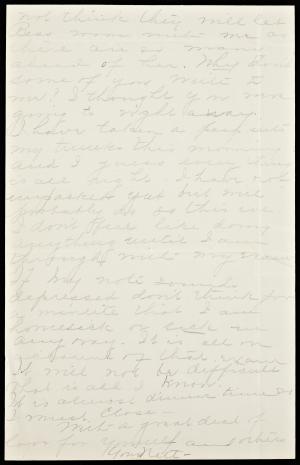 not think they will let
Bess room with me as
there are so many
ahead of her. Why don't
some of you write to
me? I thought you were
going to right away.
I have taken a peep into
my trunks this morning
and I guess every thing
is all right. I have not
unpacked yet but will
probably do so this eve.
I don't feel like doing
anything until I am
through with my exam
If my note sounds
depressed don't think for
a minute that I am
homesick or sick in
any way. It is all on
account of that exam
It will not be difficult
that is all I know.
It is almost dinner time so
I must close —
With a great deal of
love for yourself and others
Your